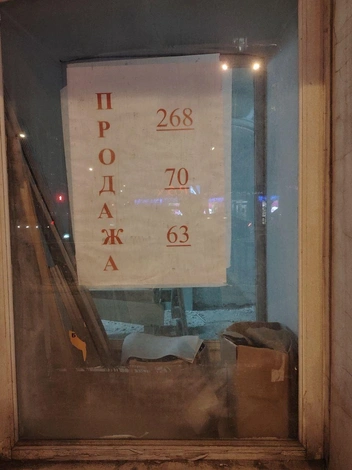 ПРОДАЖА
268
70
63